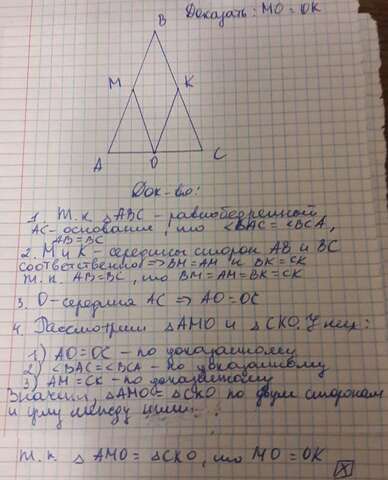 Доказать: MO = OK
B
M
K
A
O
C
Док-во:
1. Т.к. △ABC - равнобедренный
AC - основание, то ∠BAC = ∠BCA,
AB = BC
2. M и K - середины сторон AB и BC
соответственно ⇒ BM = AM и BK = CK
Т.к. AB = BC, то BM = AM = BK = CK
3. O - середина AC ⇒ AO = OC
4. Рассмотрим △AMO и △CKO. У них:
1) AO = OC - по доказанному
2) ∠BAC = ∠BCA - по доказанному
3) AM = CK - по доказанному
Значит, △AMO = △CKO по двум сторонам
и углу между ними.
Т.к. △AMO = △CKO, то MO = OK